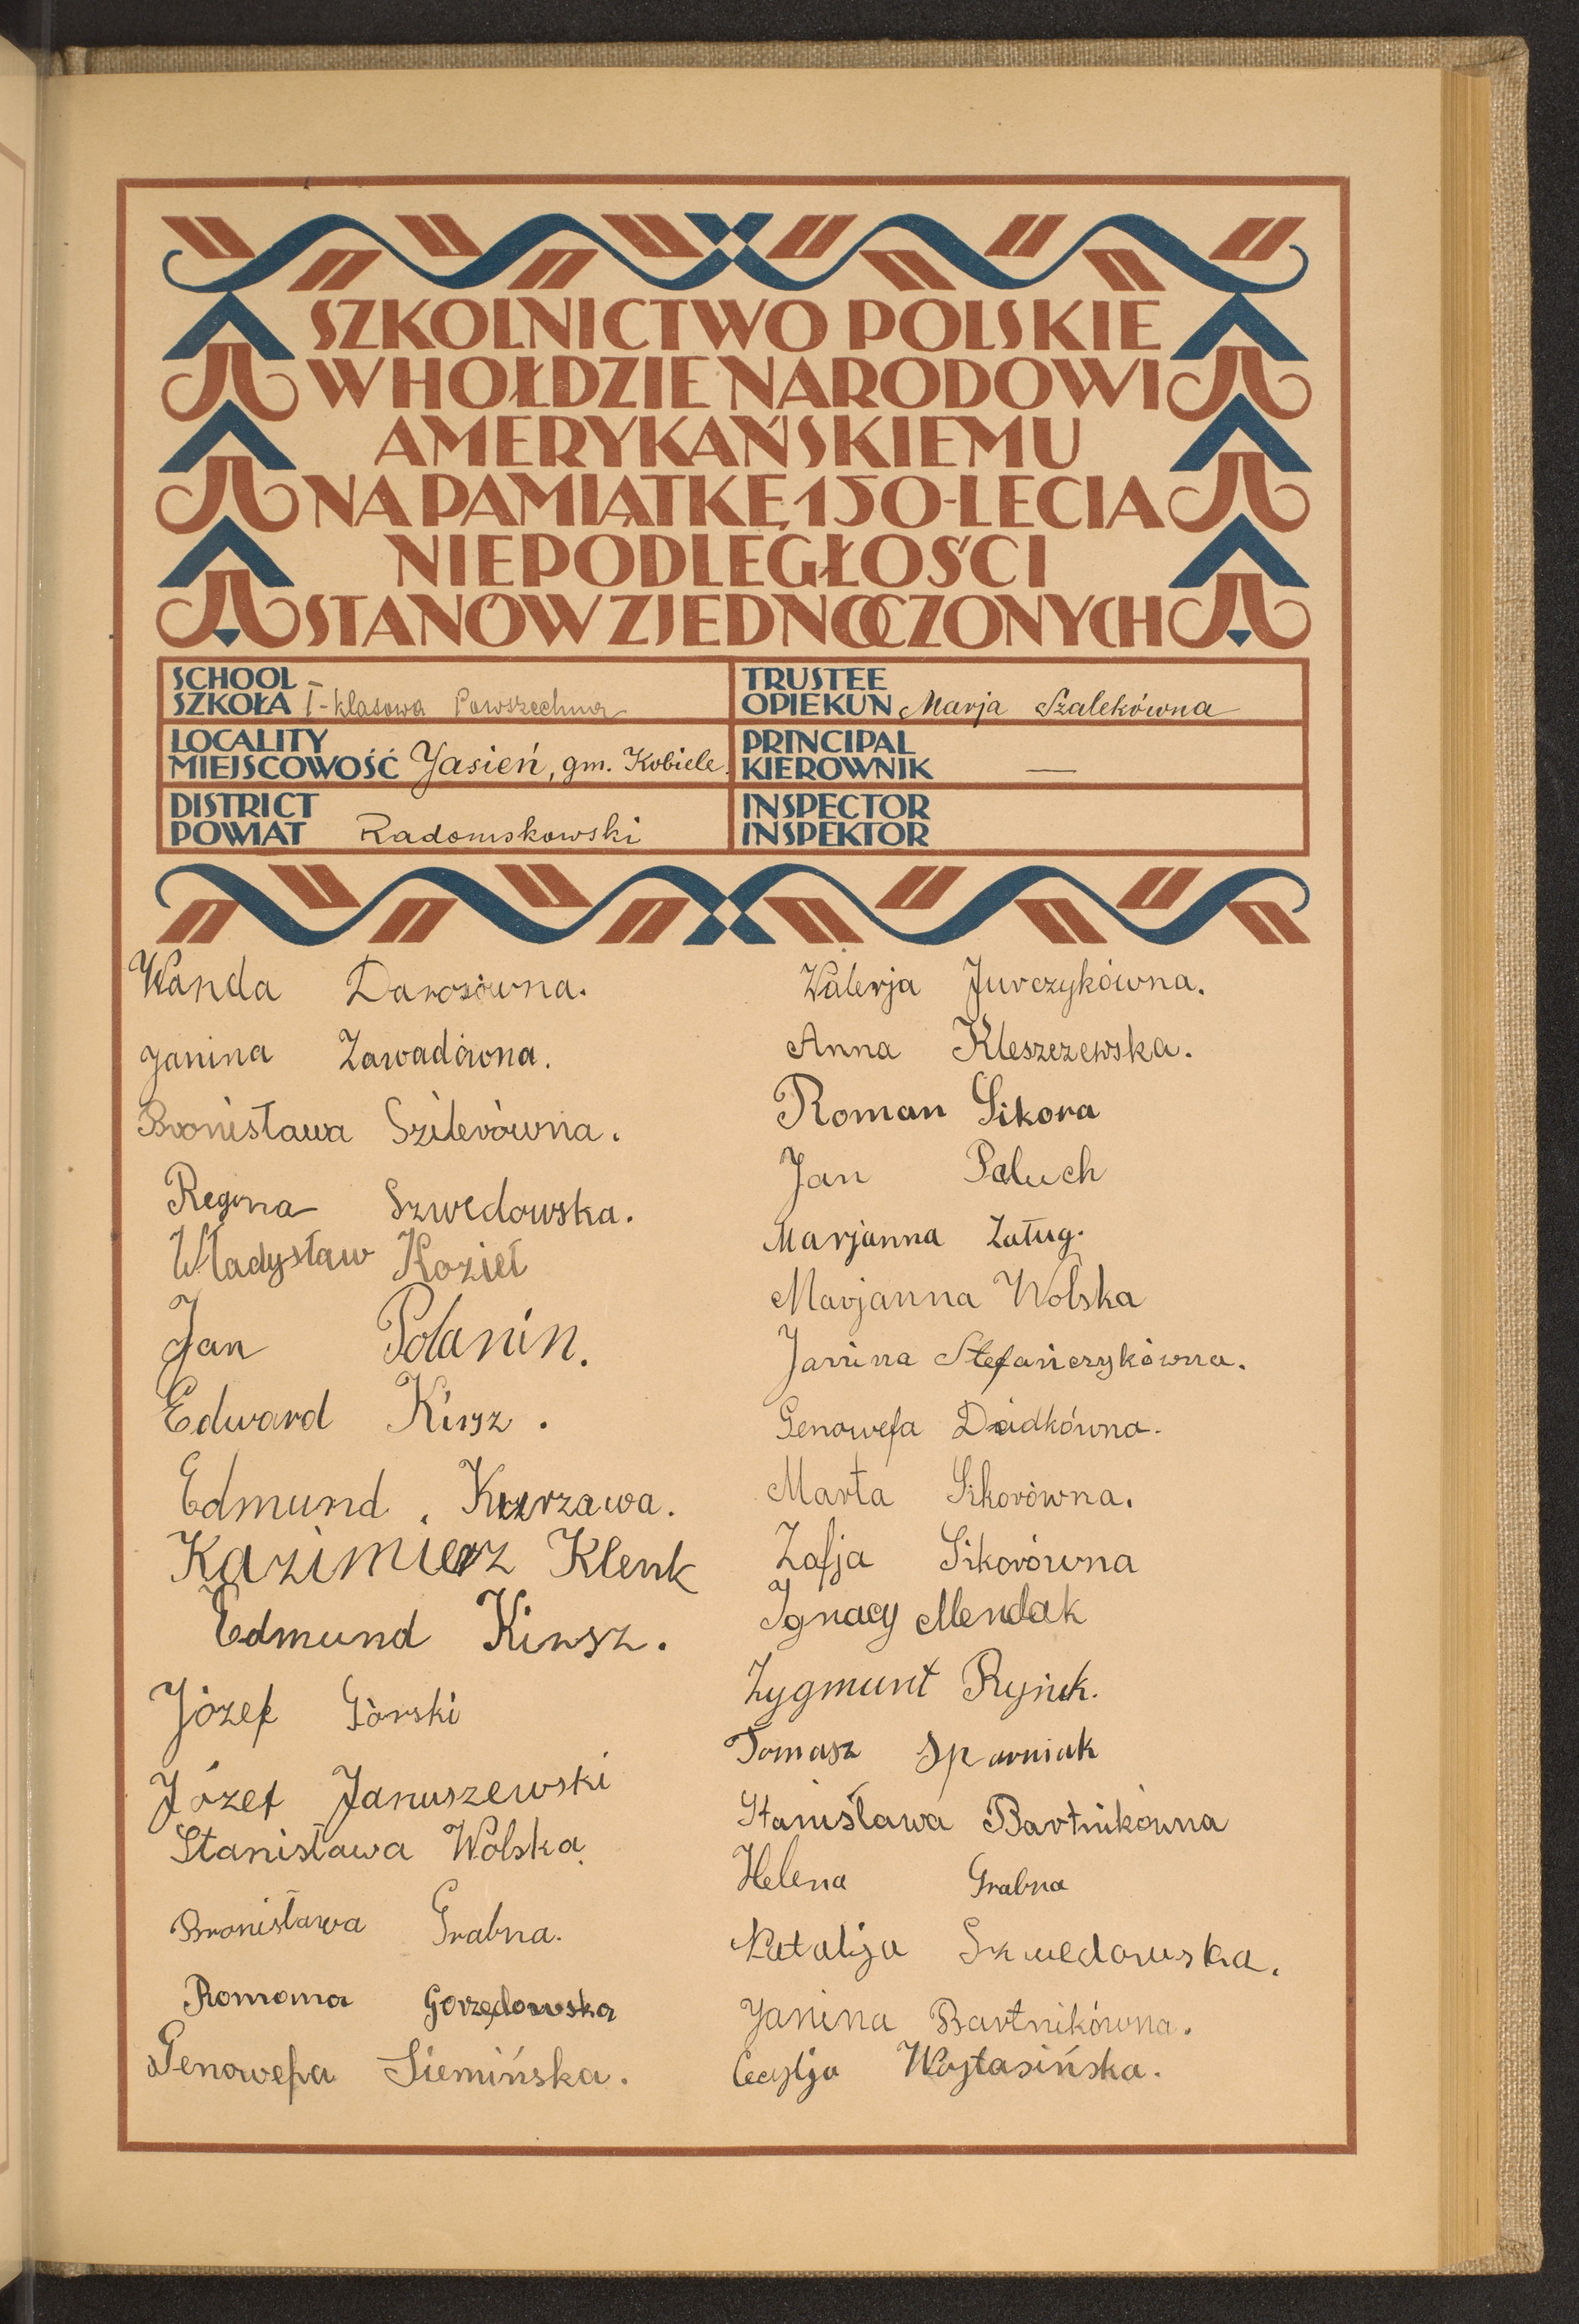 SZKOLNICTWO POLSKIE
W HOŁDZIE NARODOWI
AMERYKAŃSKIEMU
NA PAMIĄTKĘ 150-LECIA
NIEPODLEGŁOŚCI
STANÓW ZJEDNOCZONYCH
SCHOOL
SZKOŁA I-klasowa Powszechna
TRUSTEE
OPIEKUN Marja Szalekówna
LOCALITY
MIEJSCOWOŚĆ Jasień, gm. Kobiele
PRINCIPAL
KIEROWNIK —
DISTRICT
POWIAT Radomskowski
INSPECTOR
INSPEKTOR
Wanda Darosówna.
Janina Zawadówna.
Bronisława Szilerówna.
Regina Szwedowska.
Władysław Kozieł
Jan Polanin.
Edward Kirsz.
Edmund Kurzawa.
Kazimierz Klenk
Edmund Kirsz.
Józef Górski
Józef Januszewski
Stanisława Wolska
Bronisława Grabna.
Romana Gorzędowska
Genowefa Siemińska.
Walerja Jurczykówna.
Anna Kleszczewska.
Roman Sikora
Jan Paluch
Marjanna Załug.
Marjanna Wolska
Janina Stefańczykówna.
Genowefa Dádkówna.
Marta Sikorówna.
Zofja Sikorówna
Ignacy Mendak
Zygmunt
Tomasz Sparniak
Stanisława Bartnikówna
Helena Grabna
Natalija Szwedowska.
Janina Bartnikówna.
Cecylja Wojtasińska.